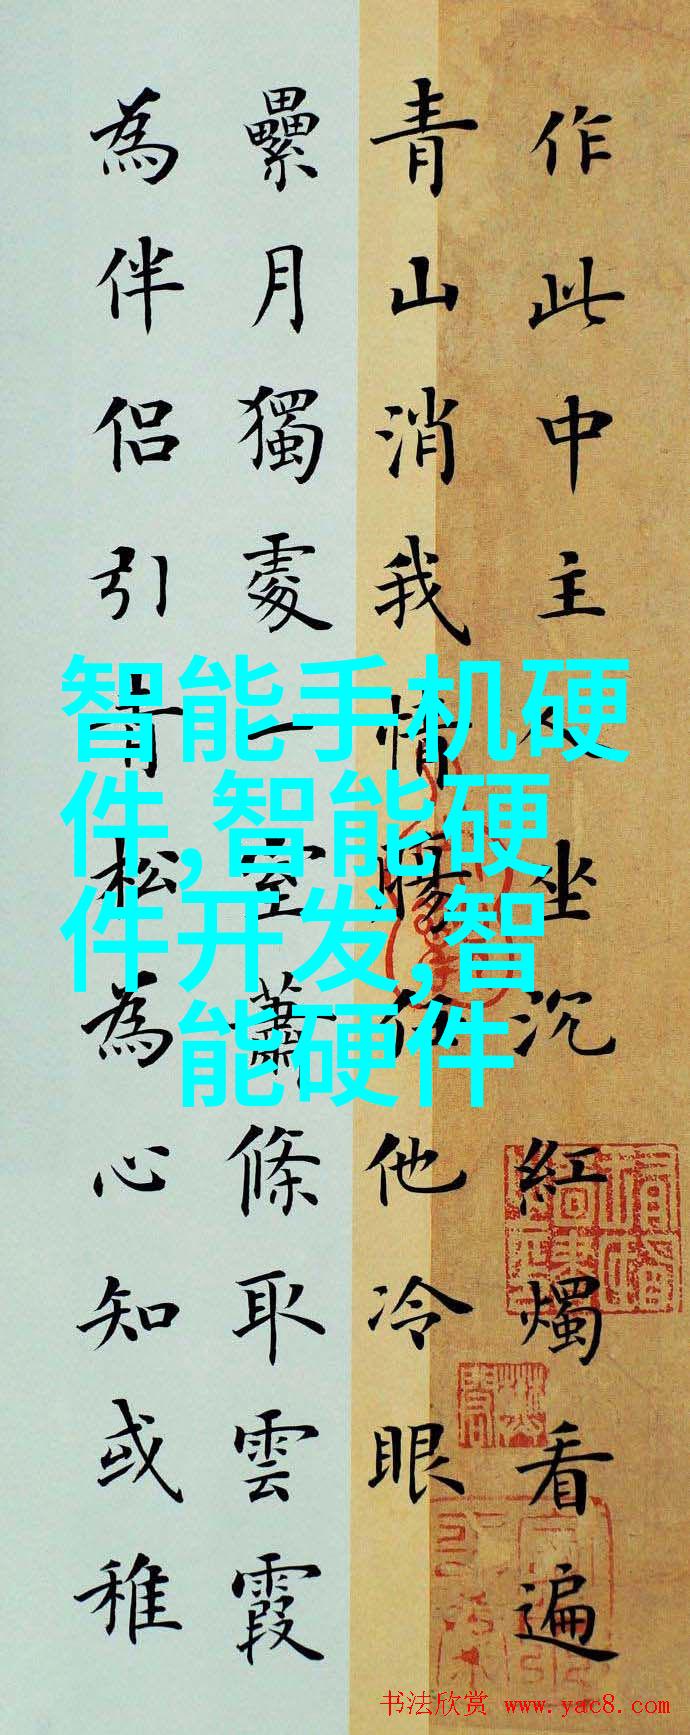 作此中主人坐沉紅燭看遍
青山消我情腸任他冷眼
纍月獨處一室蕭條取雲霞
為伴侶引青松為心知或稚
智能手机硬
件,智能硬
件开发,智
能硬件
书法欣赏 www.yac8.com